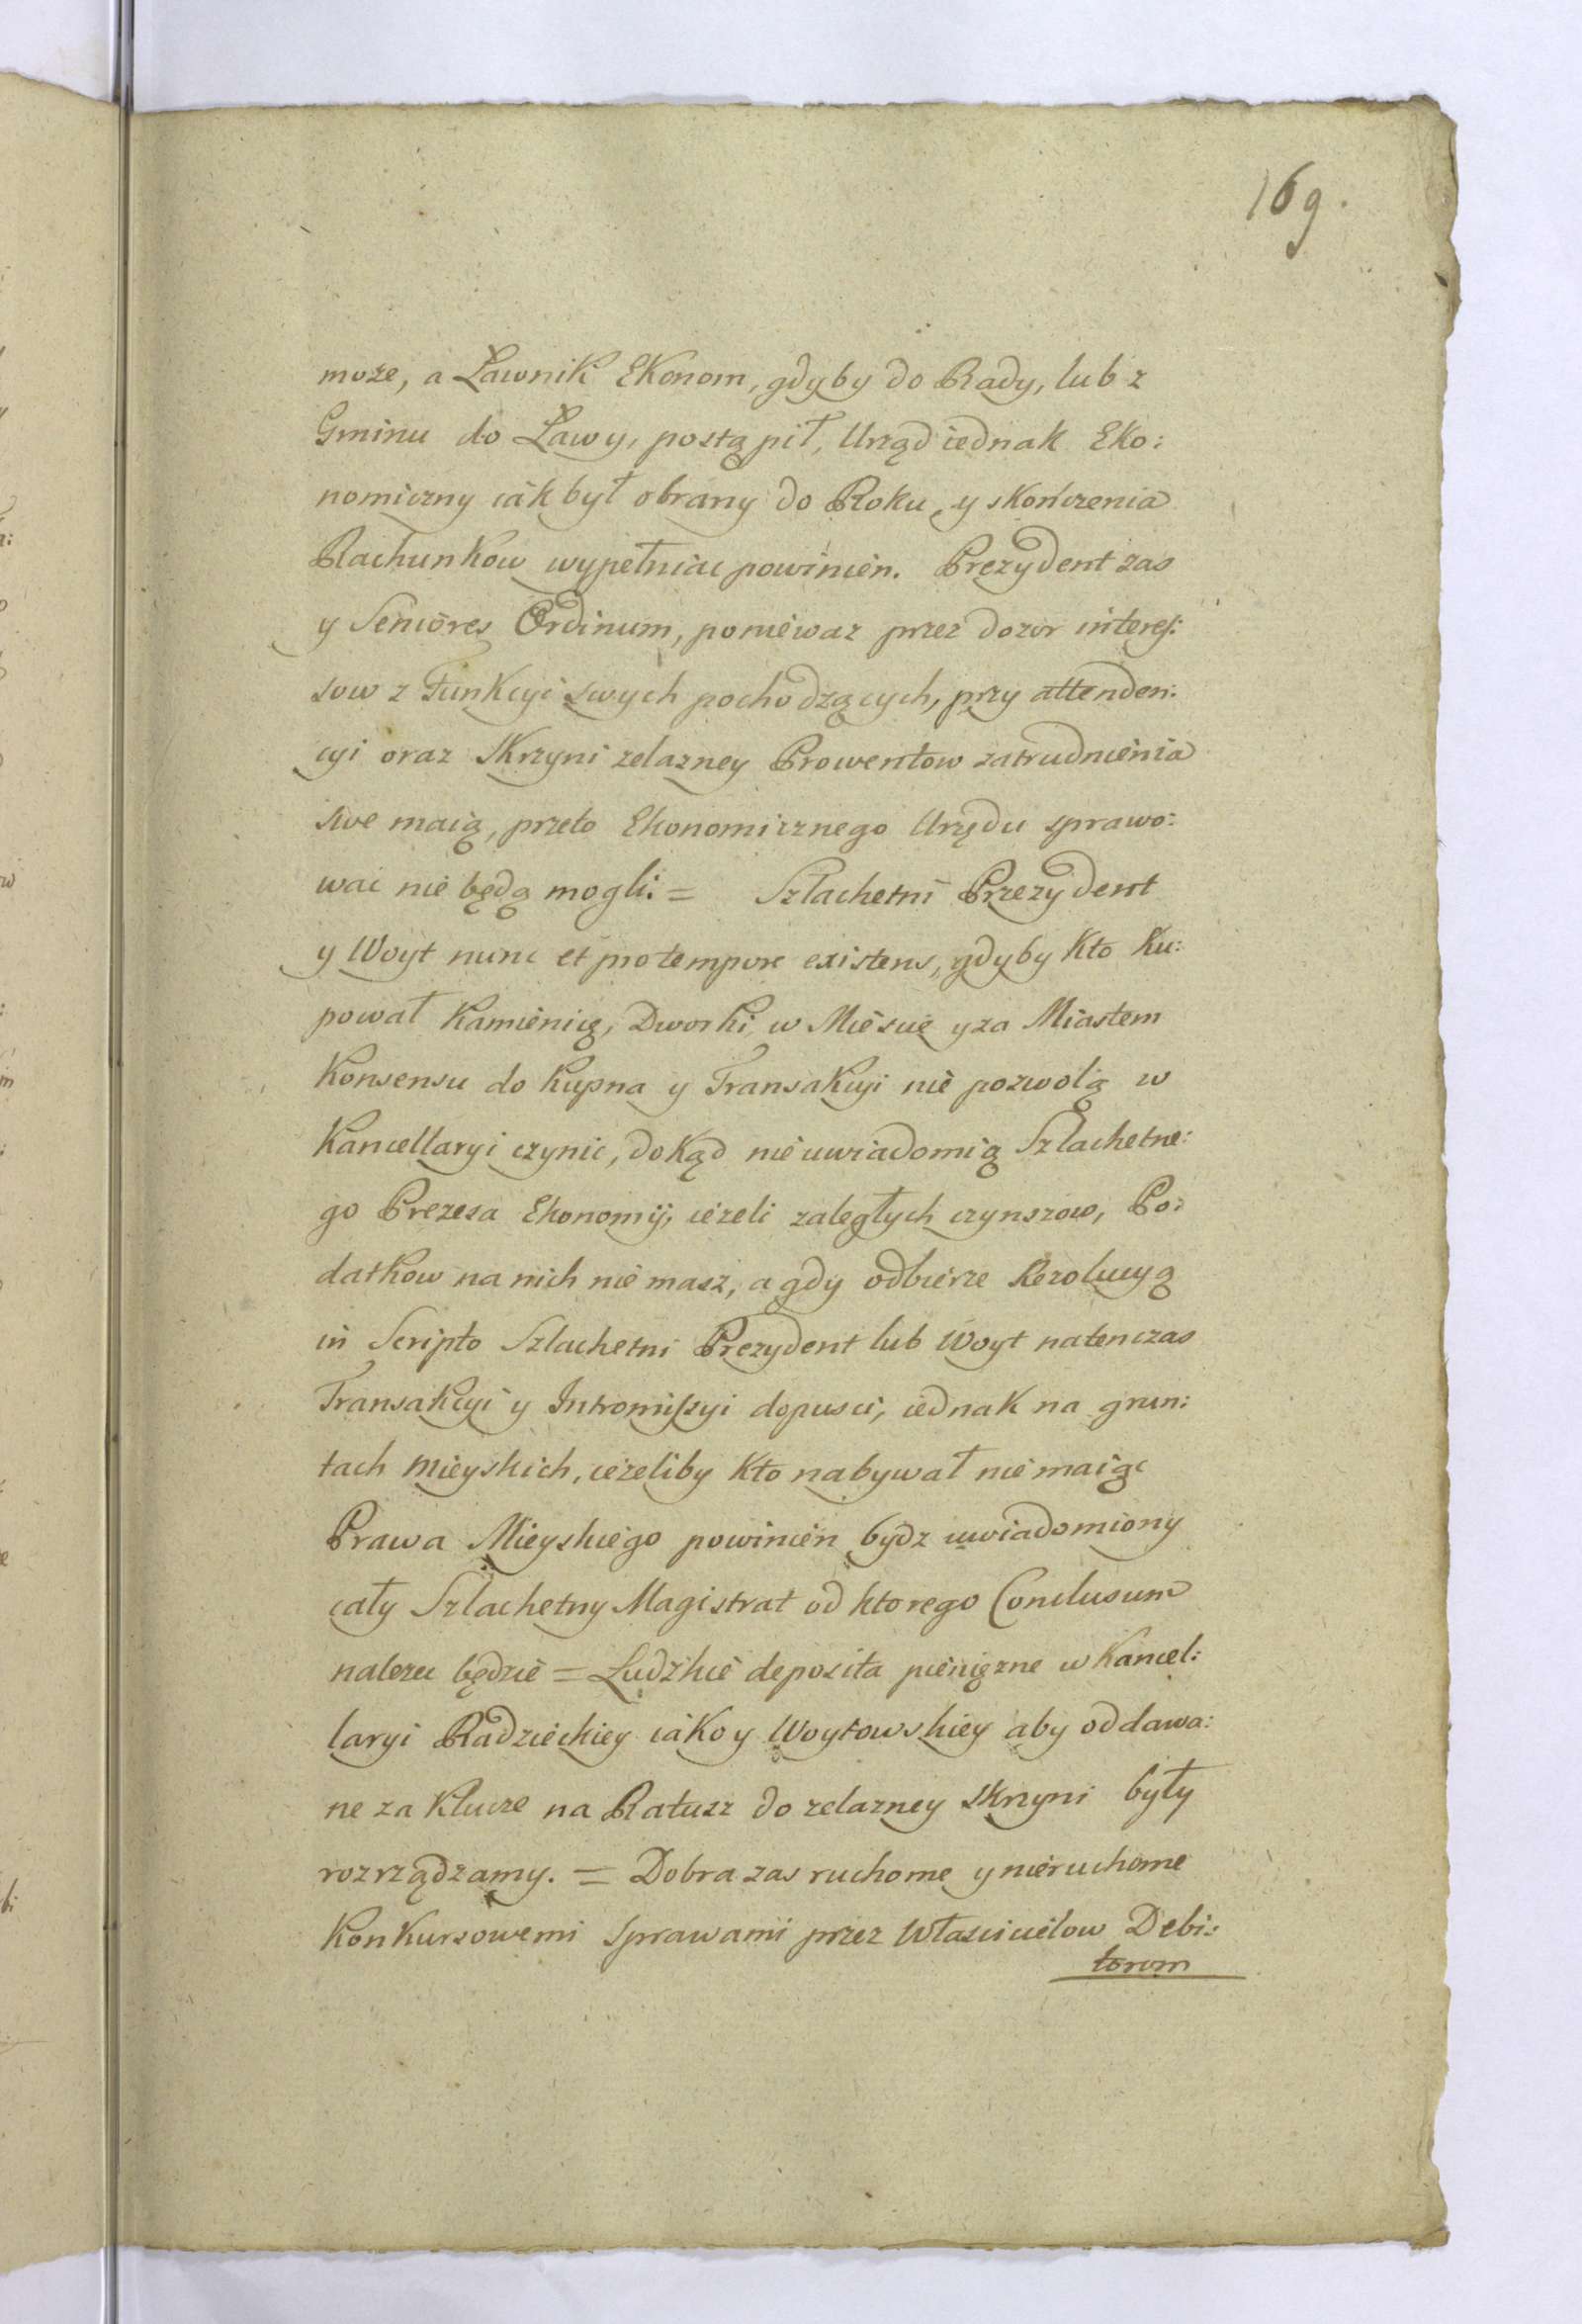 169.
może, a Ławnik Ekonom, gdyby do Rady, lub z
Gminu do Ławy, postąpił, Urząd iednak Eko:
nomiczny iak był obrany do Roku, y skończenia
Rachunkow wypełniac powinien. Prezydent zas
y Seniores Ordinum, poniewaz przez dozor interes:
sow z Funkcyi swych pochodzących, przy attenden:
cyi oraz Skrzyni zelazney Prowentow zatrudnienia
swe maią, przeto Ekonomicznego Urzędu sprawo:
wac nie będą mogli. = Szlachetni Prezydent
y Woyt nunc et pro tempore existens, gdyby Kto Ku:
pował Kamienicę, Dworki w Miescie y za Miastem
Konsensu do Kupna y Transakcyi nie pozwolą w
Kancellaryi czynic, dokąd nie uwiadomią Szlachetne:
go Prezesa Ekonomij, ieżeli zaległych czynszow, Po:
datkow na nich nie masz, a gdy odbierze Rezolucyą
in Scripto Szlachetni Prezydent lub Woyt natenczas
Transakcyi y Intromissyi dopusci, iednak na grun:
tach Mieyskich, ieżeliby Kto nabywał nie maiąc
Prawa Mieyskiego powinien bydz uwiadomiony
cały Szlachetny Magistrat od ktorego Conclusum
nalezec będzie = Ludzkie deposita pieniężne w Kancel:
laryi Radzieckiey iako y Woytowskiey aby oddawa:
ne za Klucze na Ratusz do zelazney Skrzyni były
rozrządzamy. = Dobra zas ruchome y nieruchome
Konkursowemi Sprawami przez Własciicielow Debi:
torom